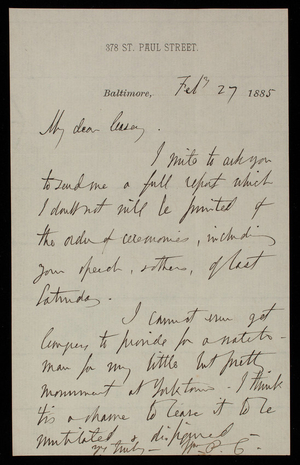 378 ST. PAUL STREET.
Baltimore, Feby 27 1885
My dear Casey.
I write to ask you
to send me a full report which
I doubt not will be printed of
the order of ceremonies, including
your speech, & others, of last
Saturday.
I cannot even get
Congress to provide for a watch-
man for my little but pretty
monument at Yorktown - I think
tis a shame to leave it to be
mutilated & disfigured -
yrs truly -